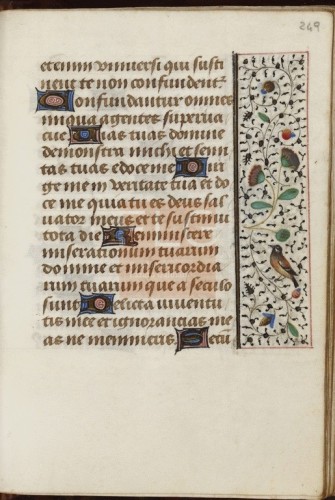 249
etenim vniuersi qui susti
nent te non confundent.
Confundantur omnes
iniqua agentes superua
cue. Uias tuas domine
demonstra michi et semi
tas tuas edoce me Diri
ge me in veritate tua et do
ce me quia tu es deus sal
uator meus et te sustinui
tota die Reminiscere
miserationum tuarum
domine et misericordia
rum tuarum que a seculo
sunt Delicta iuuentu
tis mee et ignorancias me
as ne memineris Secū